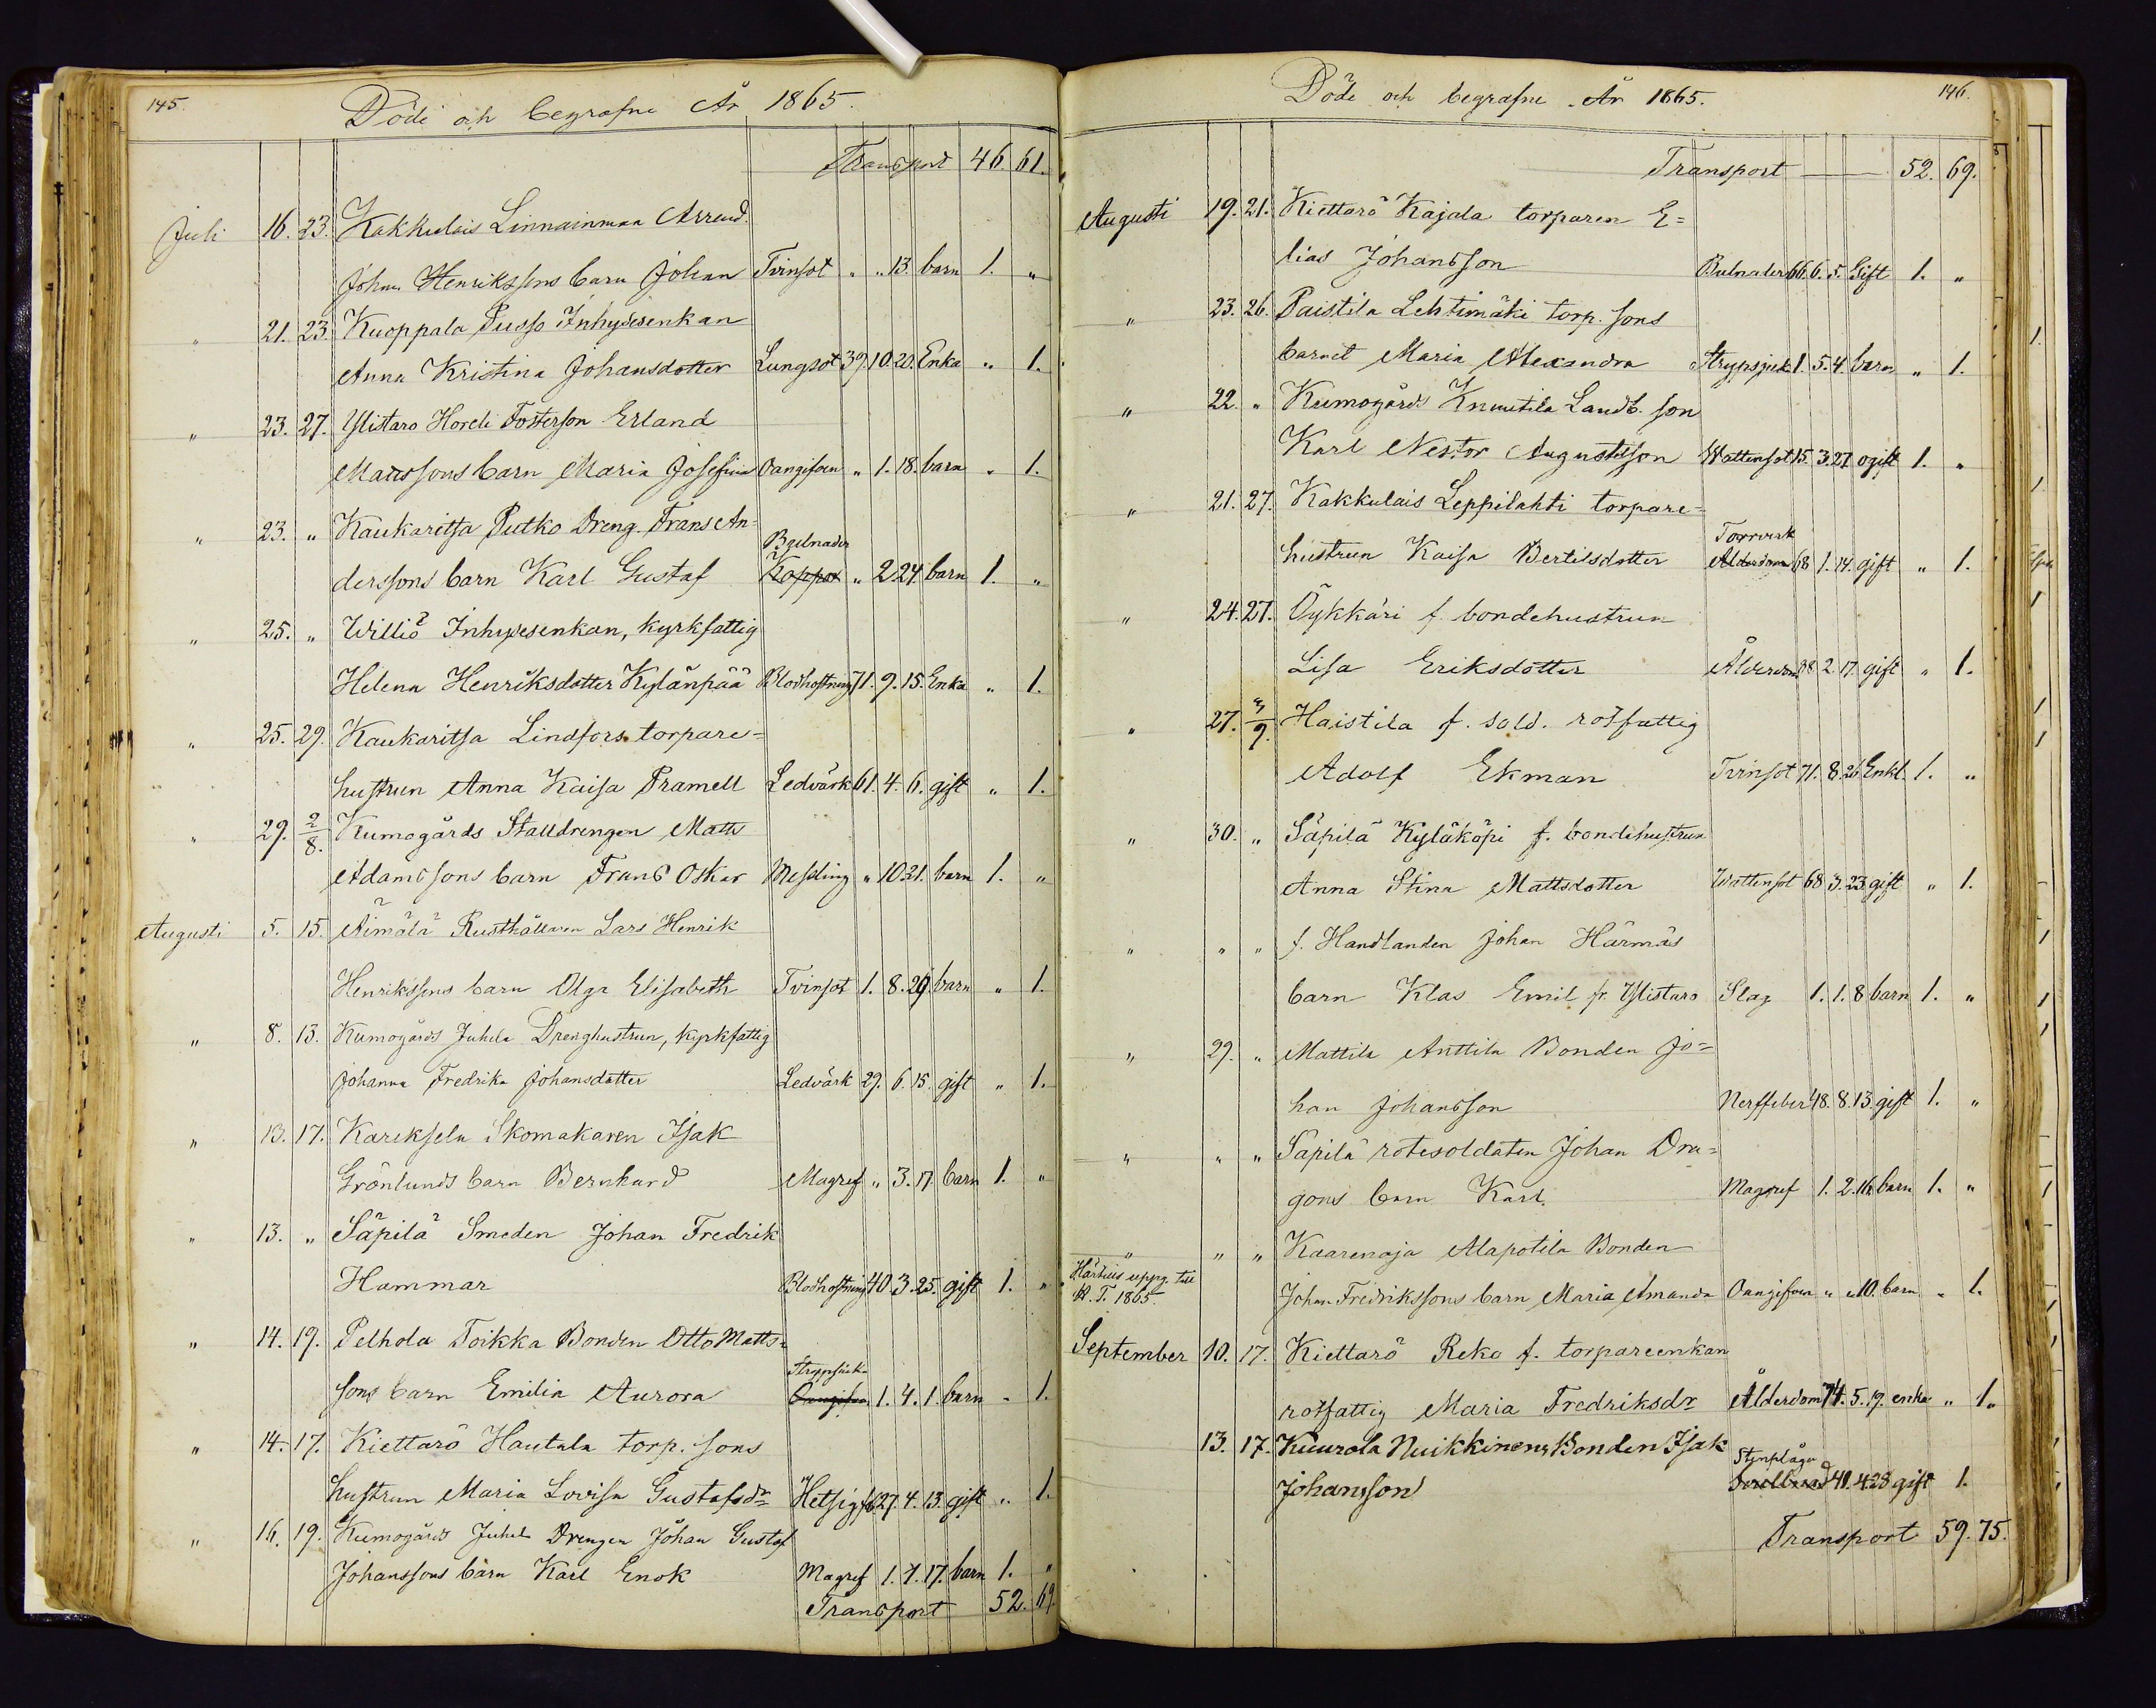 145.
Döde och begrafne År 1865.
Transport 46. 61.
Juli 16. 23. Kakkulais Linnainmaa Arrend.
Johan Henrikssons barn Johan Tvinsot " " 13. barn 1. "
" 21. 23. Kuoppala Pusso Inhysesenkan
Anna Kristina Johansdotter Lungsot 39. 10. 20. Enka " 1.
" 23. 27. Ylistaro Horeli Fosterson Erland
Matssons barn Maria Josefina Oangifven " 1. 18. barn " 1.
" 23. " Kaukaritsa Putko Dreng. Frans An-
Bulnader
derssons barn Karl Gustaf Koppor " 2. 24 barn 1. "
" 25. " Williö Inhysesenkan, kyrkfattig
Helena Henriksdotter Kylänpää Blodhostning 71. 9. 15. Enka " 1.
" 25. 29. Kaukaritsa Lindfors torpare=
hustrun Anna Kaisa Pramell Ledvärk 61. 4. 6. gift " 1.
" 29. 2/8. Kumogårds Stalldrengen Matts
Adamssons barn Frans Oskar Messling " 10. 21. barn 1. "
Augusti 5. 15. Äimälä Rusthållaren Lars Henrik
Henrikssons barn Olga Elisabeth Tvinsot 1. 8. 29 barn " 1.
" 8. 13. Kumogårds Juhela Drenghustrun, kyrkfattig
Johanna Fredrika Johansdotter Ledvärk 29. 6. 15. gift " 1.
" 13. 17. Kareksela Skomakaren Isak
Grönlunds barn Bernhard Magref " 3. 17. barn 1. "
" 13. " Säpilä Smeden Johan Fredrik
Hammar Blodhostning 40. 3. 25. gift 1. "
" 14. 19. Pelhola Toikka Bonden Otto Matts-
Strypsjuka
sons barn Emilia Aurora Oangifven 1. 4. 1. barn " 1.
" 14. 17. Kiettarö Hautala torp. sons
hustrun Maria Lovisa Gustafsdr Hetsig feb. 27. 4. 13. gift " 1.
" 16. 19. Kumogårds Juhel Drengen Johan Gustaf
Johanssons barn Karl Enok Magref 1. 7. 17. barn 1. "
Transport 52. 69.
146.
Döde och begrafne År 1865.
Transport 52. 69.
Augusti 19. 21. Kiettarö Kajala torparen E=
lias Johansson Bulnader 66. 6. 5. Gift 1. "
" 23. 26. Paistila Lehtimäki torp. sons
barnet Maria Alexandra Strypsjuk. 1. 5. 4. barn " 1.
" 22. " Kumogårds Knuutila Landb. son
Karl Nestor Augustsson Wattensot 15. 3. 27. ogift 1. "
" 21. 27. Kakkulais Leppilahti torpare=
Torrverk
hustrun Kaisa Bertilsdotter Alderdom 68 1. 14. gift " 1.
" 24. 27. Öykkäri f. bondehustrun
Lisa Eriksdotter Ålderdom 88 2. 17. gift " 1.
" 27. 3/9. Haistila f. sold. rotfattig
Adolf Ekman Tvinsot 71. 8. 26 Enkl. 1. "
" 30. " Säpilä Kyläköpi f. bondehustrun
Anna Stina Mattsdotter Wattensot 68 3. 23. gift " 1.
" " " f. Handlanden Johan Härmäs
barn Klas Emil fr. Ylistaro Slag 1. 1. 8 barn 1. "
" 29. " Mattila Anttila Bonden Jo=
han Johansson Nerffeber 48. 8. 13. gift 1. "
" " " Säpilä rotesoldaten Johan Dra=
gons barn Karl Magref 1. 2. 16. barn 1. "
" " " Kaarenoja Alapotila Bonden
Härtills uppg. till
A. T. 1865.
Johan Fredrikssons barn Maria Amanda Oangifven " " 10. barn " 1.
September 10. 17. Kiettarö Reko f. torpareenkan
rotfattig Maria Fredriksdr Ålderdom 74. 5. 19. enka " 1.
13. 17. Kuurola Nuikkinens Bonden Isak
Stenplåga
Johansson 41. 4. 28 gift 1.
Transport 59. 75.